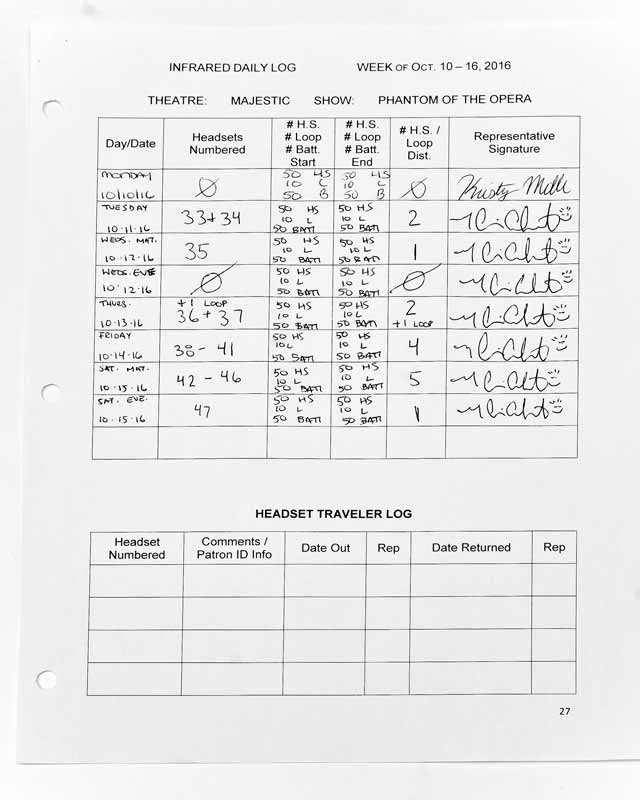 INFRARED DAILY LOG WEEK OF OCT. 10 – 16, 2016
THEATRE: MAJESTIC SHOW: PHANTOM OF THE OPERA
Day/Date
Headsets
Numbered
# H.S.
# Loop
# Batt.
Start
# H.S.
# Loop
# Batt.
End
# H.S. /
Loop
Dist.
Representative
Signature
MONDAY
10/10/16
Ø
50 HS
10 L
50 B
50 HS
10 L
50 B
Ø
TUESDAY
10·11·16
33+34
50 HS
10 L
50 BATT
50 HS
10 L
50 BATT
2
WEDS. MAT.
10·12·16
35
50 HS
10 L
50 BATT
50 HS
10 L
50 BATT
1
WEDS. EVE
10·12·16
Ø
50 HS
10 L
50 BATT
50 HS
10 L
50 BATT
Ø
THURS.
10·13·16
+1 LOOP
36+37
50 HS
10 L
50 BATT
50 HS
10 L
50 BATT
2
+1 LOOP
FRIDAY
10·14·16
38 - 41
50 HS
10 L
50 BATT
50 HS
10 L
50 BATT
4
SAT. MAT.
10·15·16
42 - 46
50 HS
10 L
50 BATT
50 HS
10 L
50 BATT
5
SAT. EVE.
10·15·16
47
50 HS
10 L
50 BATT
50 HS
10 L
50 BATT
1
HEADSET TRAVELER LOG
Headset
Numbered
Comments /
Patron ID Info
Date Out
Rep
Date Returned
Rep
27